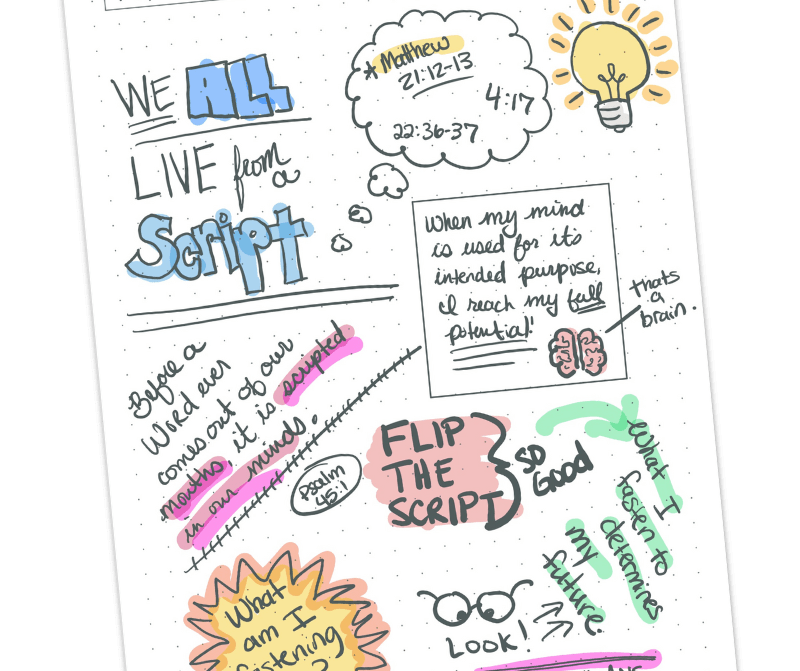 WE ALL
LIVE from
a
Script
* Matthew
21:12-13
4:17
22:36-37
When my mind
is used for it's
intended purpose,
I reach my full
potential!
thats
a
brain.
Before a
Word ever
comes out of our
mouths, it is scripted
in our minds.
Psalm
45:1
FLIP
THE
SCRIPT
SO
GOOD
What I
fasten to
determines
my
future.
What
am I
listening
LOOK!